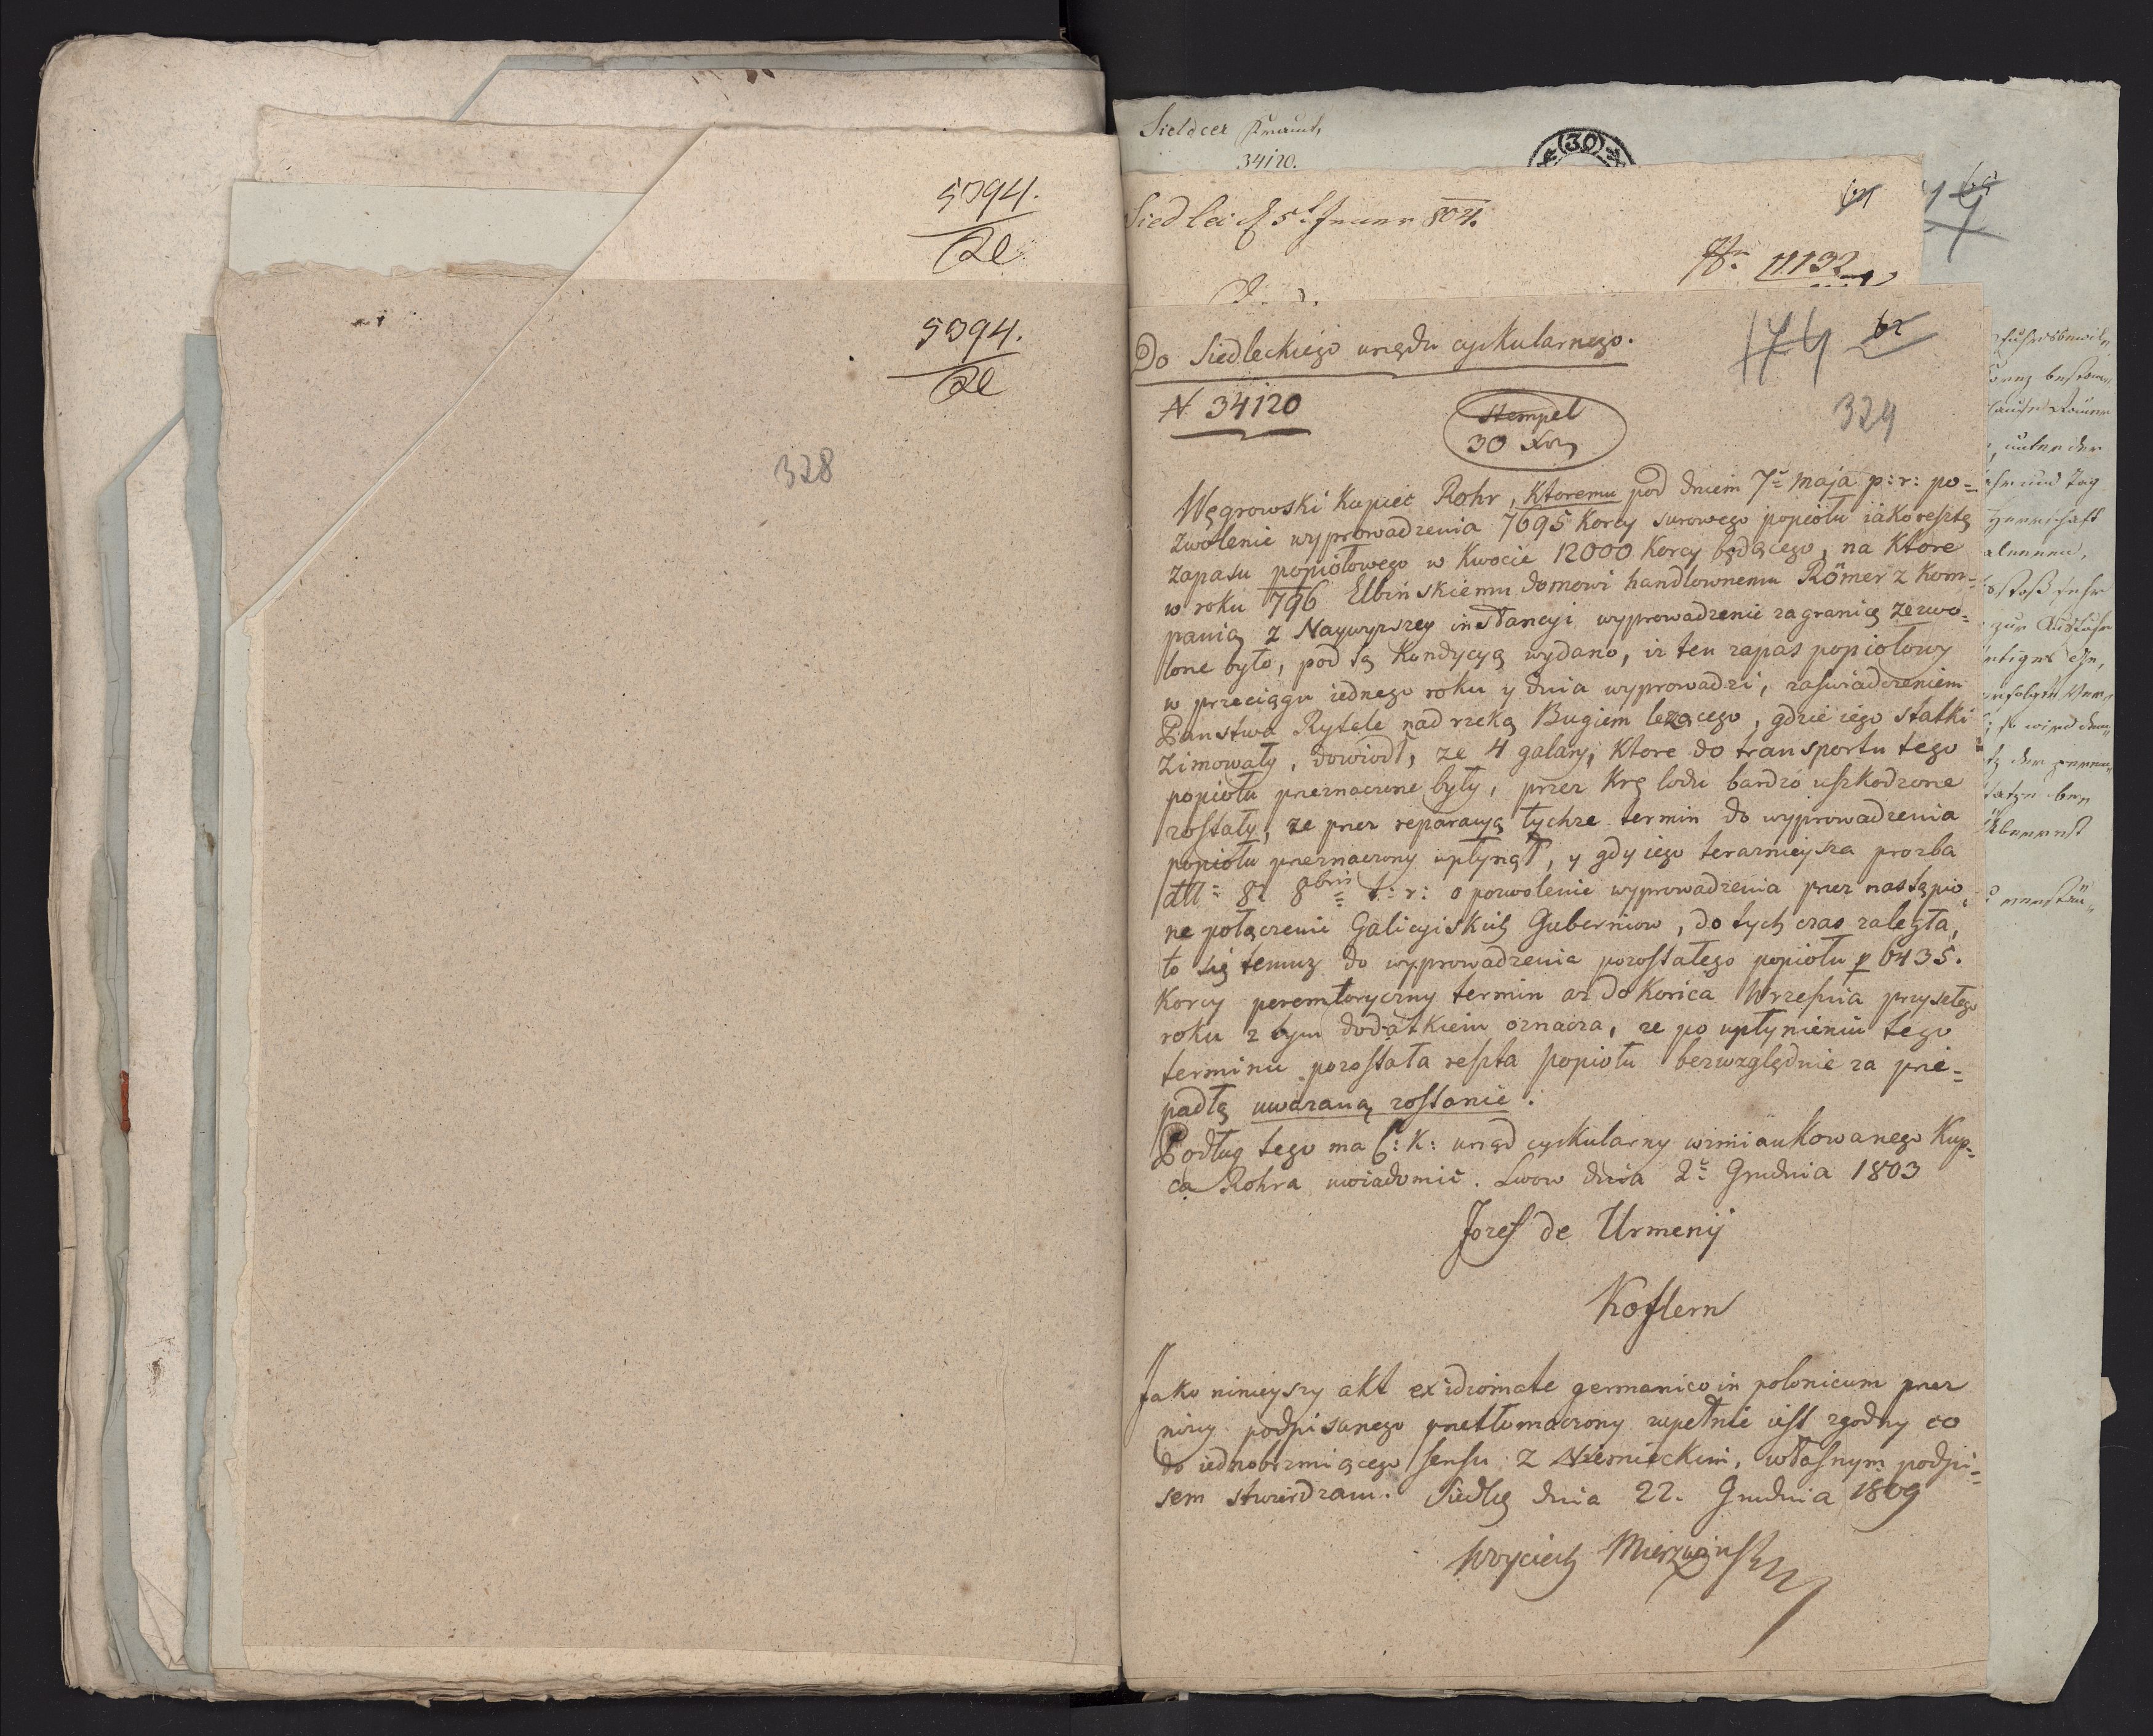 5094.
5094.
328
Sieldcer
34120.
(30)
11132
Do Siedleckiego urzędu cyrkularnego.
174 62
N 34120
Stempel
30 Xr
329
Węgrowski Kupiec Rohr, Ktoremu pod dniem 7º Maja p: r: po=
zwolenie wyprowadzenia 7695 Korcy surowego popiołu iako resztę
zapasu popiołowego w Kwocie 12000 Korcy będącego, na Ktore
w roku 796 Elbińskiemu domowi handlownemu Römer z Kom=
panią z Naywyrszey instancyi wyprowadzenie za granicę zezwo=
lone było, pod tą Kondycyą wydano, iz ten zapas popiołowy
w przeciągu iednego roku y dnia wyprowadzi, zaswiadczeniem
Panstwa Rytele nad rzeką Bugiem lezącego, gdzie iego statki
zimowały, dowiodł, ze 4 galary, Ktore do transportu tego
popiołu przeznaczone były, przez Krę lodu bardzo uszkodzone
zostały, ze przez reparacyą tychze termin do wyprowadzenia
popiołu przeznaczony upłynął, y gdy iego teraznieysza prozba
dtt= 8º 8bris t: r: o pozwolenie wyprowadzenia przez nastąpio
ne połączenie Galicyiskich Guberniow, do tych czas zaległa,
to się temuz do wyprowadzenia pozostałego popiołu p 6435.
Korcy peremtoryczny termin az do Konca Wrzesnia przyszłego
roku z tym dodatkiem oznacza, ze po upłynieniu tego
terminu pozostała reszta popiołu bezwzględnie za prze=
padłą uwazaną zostanie.
Podług tego ma C: K: urząd cyrkularny wzmiankowanego Kup=
ca Rohra uwiadomić. Lwow dnia 2º Grudnia 1803
Jozef de Urmenij
Koflern
Jako ninieyszy akt ex idiomate germanico in polonicum przez
nizey podpisanego przetłomaczony zupełnie iest zgodny co
do iednobrzmiącego sensu z Niemieckim, własnym podpi=
sem stwierdzam. Siedlcę dnia 22. Grudnia 1809
Woyciech Mierzwinski